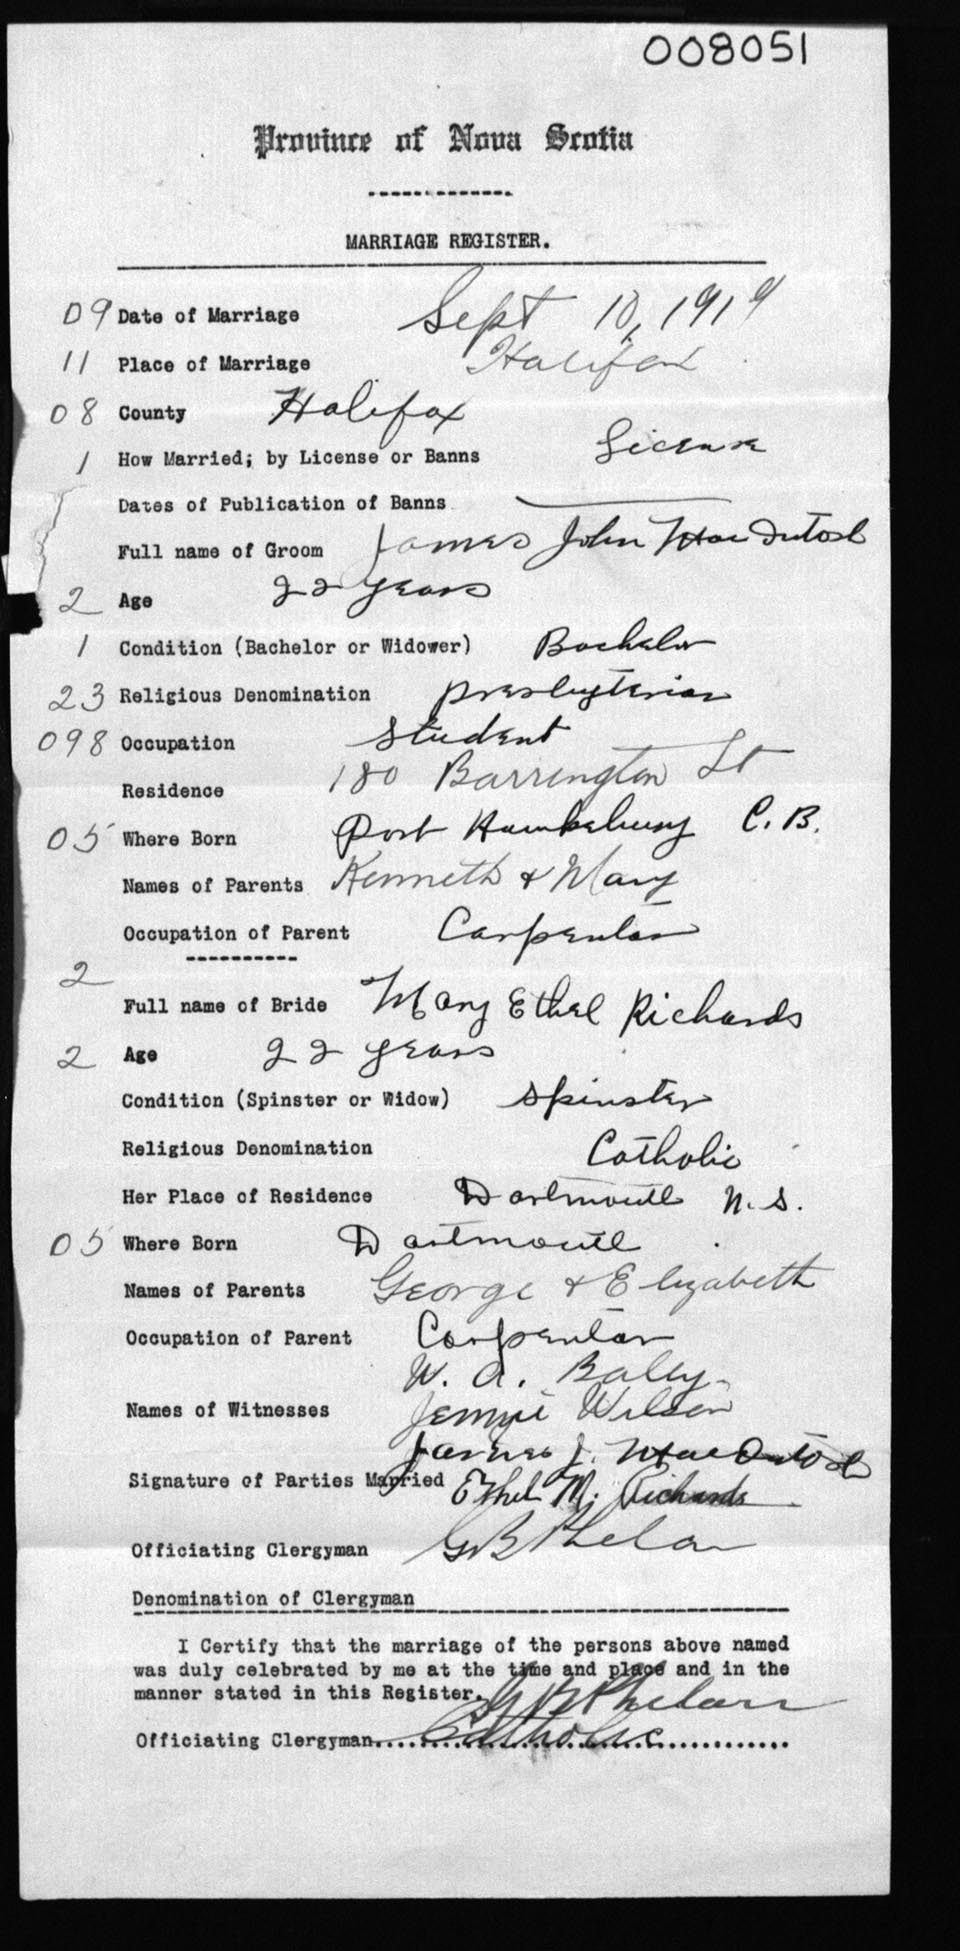 008051
Province of Nova Scotia
MARRIAGE REGISTER.
09 Date of Marriage Sept 10, 1919
11 Place of Marriage Halifax
08 County Halifax
1 How Married; by License or Banns License
Dates of Publication of Banns
Full name of Groom James John MacIntosh
2 Age 22 years
1 Condition (Bachelor or Widower) Bachelor
23 Religious Denomination Presbyterian
098 Occupation Student
Residence 180 Barrington St
05 Where Born Port Hawkesbury C.B.
Names of Parents Kenneth & Mary
Occupation of Parent Carpenter
2
Full name of Bride Mary Ethel Richards
2 Age 22 years
Condition (Spinster or Widow) Spinster
Religious Denomination Catholic
Her Place of Residence Dartmouth N.S.
05 Where Born Dartmouth
Names of Parents George & Elizabeth
Occupation of Parent Carpenter
W. A. Baley
Names of Witnesses Jennie Wilson
James J. MacIntosh
Signature of Parties Married Ethel M. Richards
Officiating Clergyman G B Phelan
Denomination of Clergyman
I Certify that the marriage of the persons above named
was duly celebrated by me at the time and place and in the
manner stated in this Register. G B Phelan
Officiating Clergyman Catholic